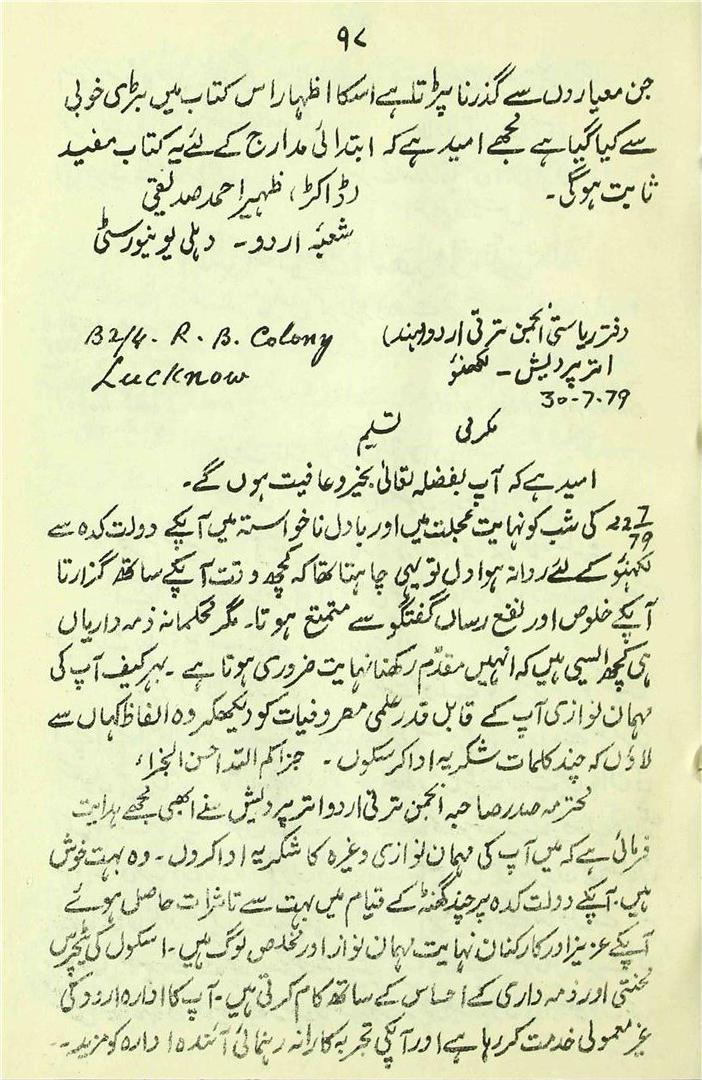 ۹۷
جن معیاروں سے گذرنا پڑتا ہے اسکا اظہار اس کتاب میں بڑی خوبی
سے کیا گیا ہے مجھے امید ہے کہ ابتدائی مدارج کے لئے یہ کتاب مفید
ثابت ہوگی۔
(ڈاکڑ) ظہیر احمد صدیقی
شعبۂ اردو۔ دہلی یونیورسٹی
دفتر ریاستی انجمن ترقی اردو (ہند) B2/4. R. B. Colony
اتر پردیش۔ لکھنؤ Lucknow
30-7-79
مکرمی تسلیم
امید ہے کہ آپ بفضلہ تعالیٰ بخیر و عافیت ہوں گے۔
22 7/79 کی شب کو نہایت عجلت میں اور بادل ناخواستہ میں آپکے دولت کدہ سے
لکھنؤ کے لئے روانہ ہوا دل تو یہی چاہتا تھا کہ کچھ وقت آپکے ساتھ گزارتا
آپکے خلوص اور نفع رساں گفتگو سے متمتع ہوتا۔ مگر محکمانہ ذمہ داریاں
ہی کچھ ایسی ہیں کہ انہیں مقدّم رکھنا نہایت ضروری ہوتا ہے۔ بہر کیف آپ کی
مہمان نوازی آپ کے قابل قدر علمی مصروفیات کو دیکھکر وہ الفاظ کہاں سے
لاؤں کہ چند کلمات شکریہ ادا کر سکوں۔ جزاکم اللہ احسن الجزاء
محترمہ صدر صاحبہ انجمن ترقی اردو اتر پردیش نے ابھی مجھے ہدایت
فرمائی ہے کہ میں آپ کی مہمان نوازی وغیرہ کا شکریہ ادا کروں۔ وہ بہت خوش
ہیں۔ آپکے دولت کدہ پر چند گھنٹہ کے قیام میں بہت سے تاثرات حاصل ہوئے
آپکے عزیز اور کارکنان نہایت مہمان نواز اور مخلص لوگ ہیں۔ اسکول کی ٹیچرس
محنتی اور ذمہ داری کے احساس کے ساتھ کام کرتی ہیں۔ آپ کا ادارہ اردو کی
غیر معمولی خدمت کر رہا ہے اور آپکی تجربہ کارانہ رہنمائی آئندہ ادارہ کو مزید۔۔